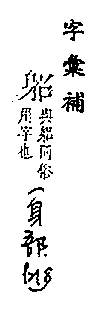 字彙補
與貂同俗
用字也
(身部